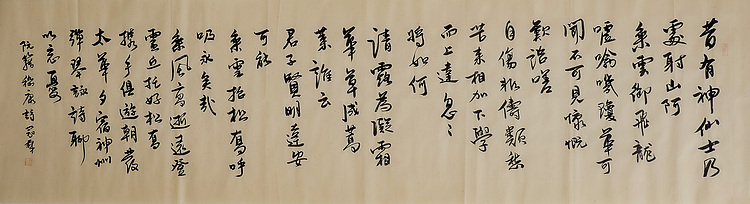 昔有神仙士乃
處射山阿
乘雲御飛龍
噓噏嘰瓊華可
聞不可見慷慨
歎諮嗟
自傷非儔類愁
苦來相加下學
而上達忽〻
將如何
清露為凝霜
華草成蒿
萊誰云
君子賢明達安
可能
乘雲招松喬呼
吸永矣哉
乘風高逝遠登
靈丘托好松喬
攜手俱遊朝發
太華夕宿神州
彈琴詠詩聊
以忘憂
阮籍嵇康詩